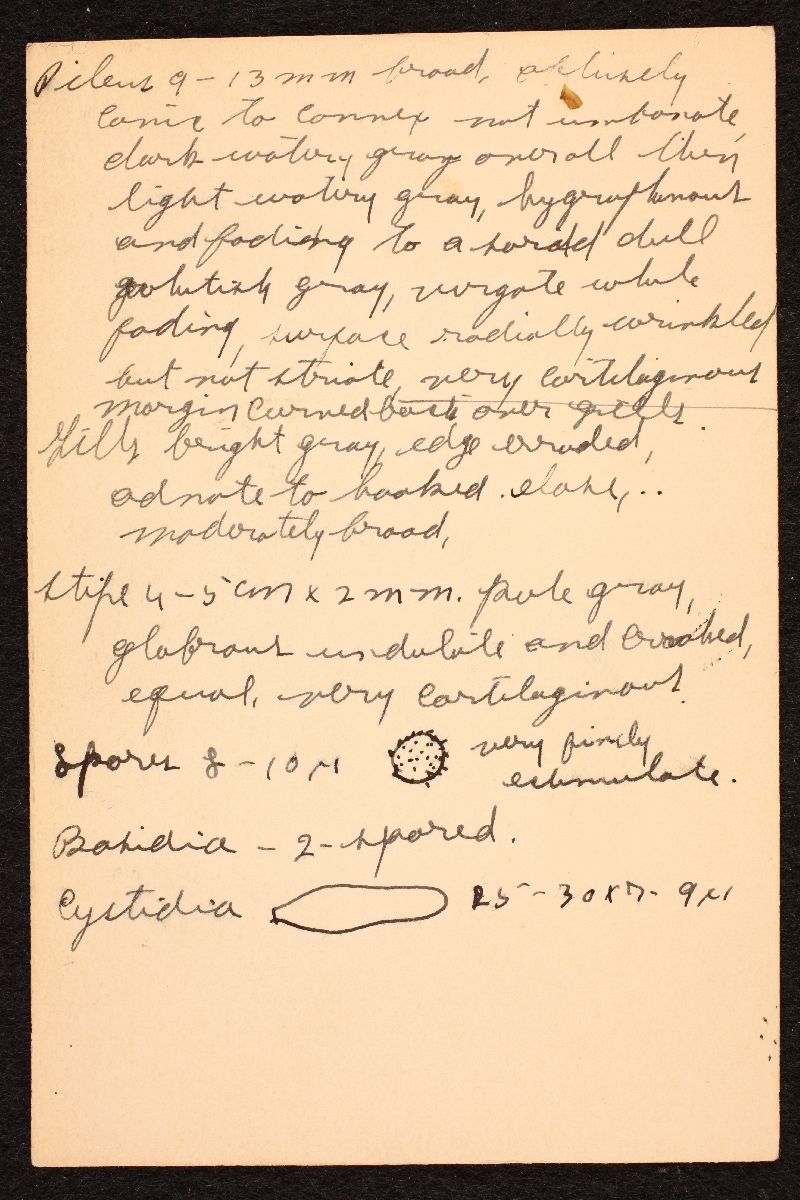 Pileus 9-13 mm broad, obtusely
conic to convex not umbonate,
dark watery gray overall then
light watery gray, hygrophanous
and fading to a sordid dull
whitish gray, virgate while
fading, surface radially wrinkled
but not striate, very cartilaginous
margin curved back over gills.
Gills bright gray, edge erroded,
adnate to hooked. close, ..
moderately broad,
Stipe 4-5 cm x 2 mm. pale gray,
glabrous undulate and crooked,
equal, very cartilaginous
Spores 8-10 µ very finely
echinulate.
Basidia - 2-spored.
Cystidia 25-30 x 7-9 µ